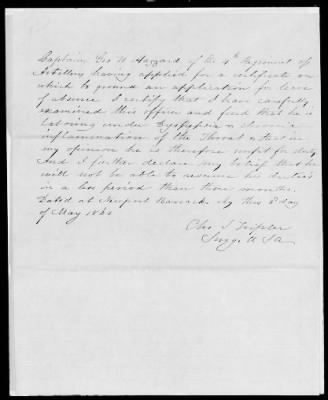 Captain Geo W Hazzard of the 4th Regiment of
Artillery having applied for a certificate on
which to ground an application for leave
of absence I certify that I have carefully
examined this officer and find that he is
laboring under Dyspepsia &
inflammation of the throat & that in
my opinion he is therefore unfit for duty
And I further declare my belief that he
will not be able to resume his duties
in a less period than three months.
Dated at Newport Barracks Ky this 8 day
of May 186
Chs S Tripler
Surg. U S A